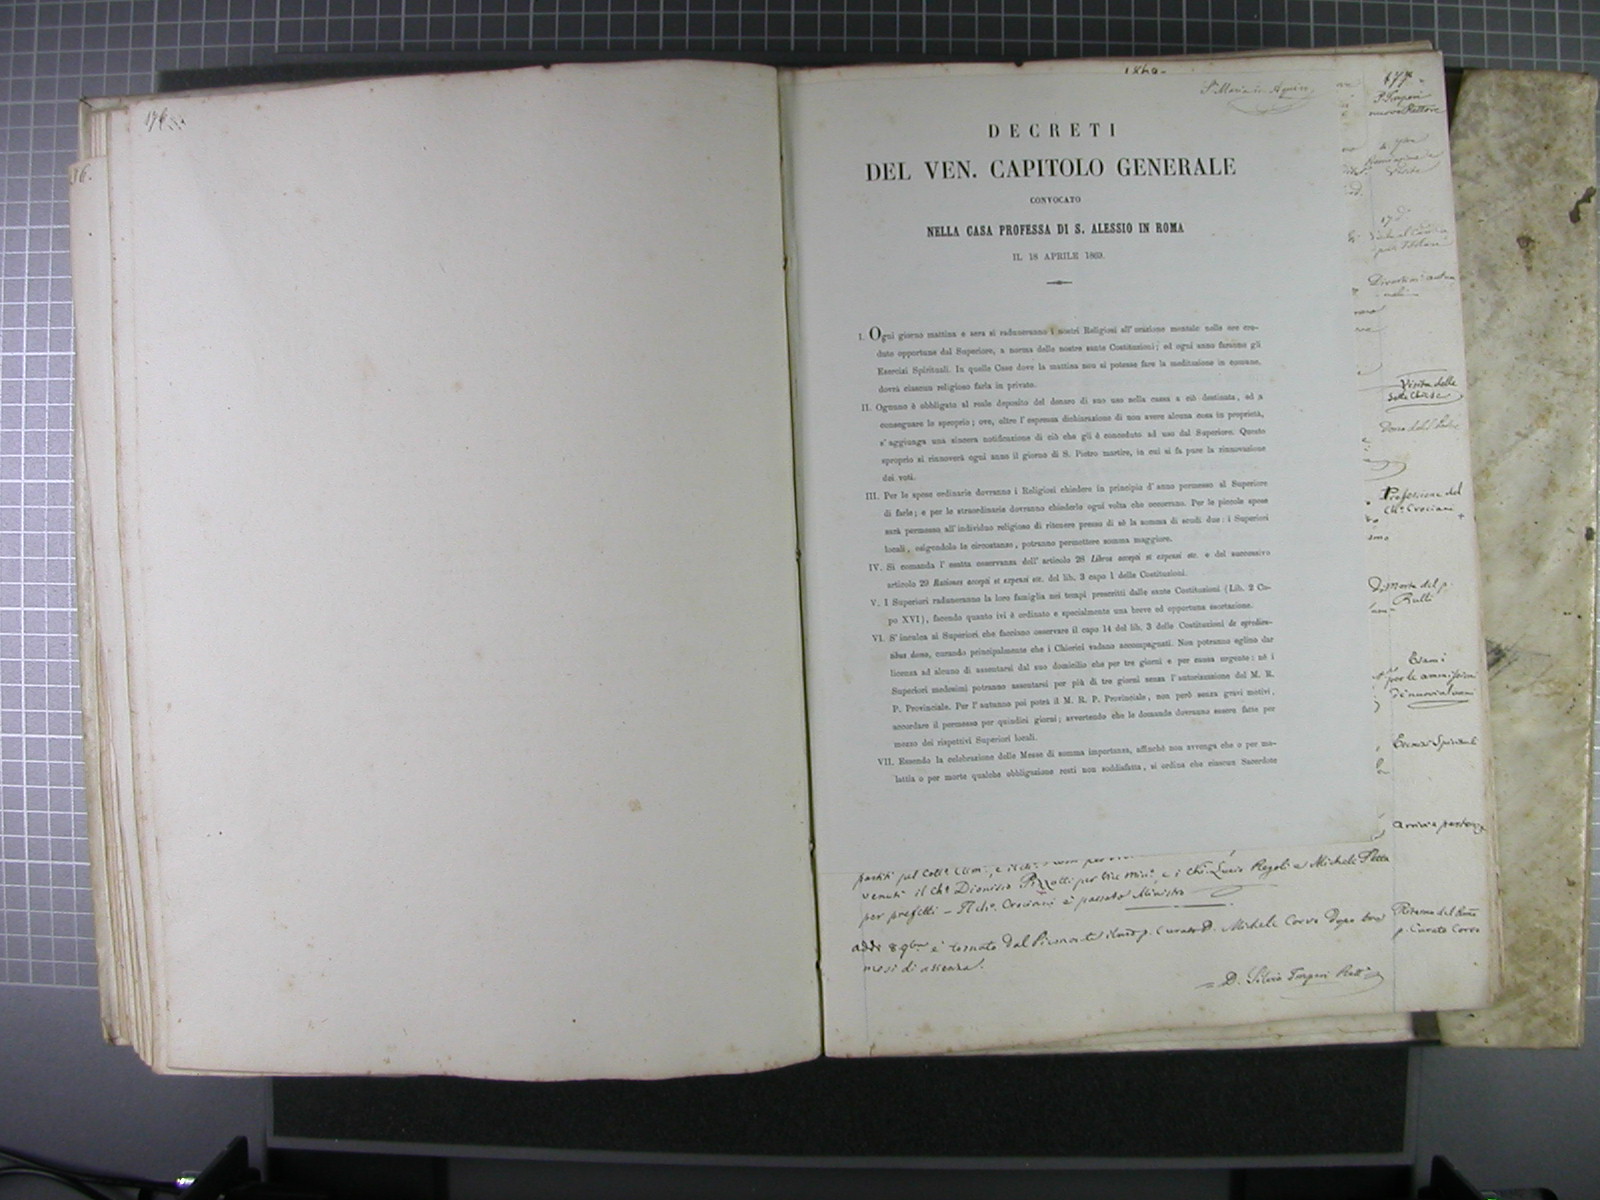 176.
36.
1869.
S. Maria in Aquiro
DECRETI
DEL VEN. CAPITOLO GENERALE
CONVOCATO
NELLA CASA PROFESSA DI S. ALESSIO IN ROMA
IL 18 APRILE 1869.
I. Ogni giorno mattina e sera si raduneranno i nostri Religiosi all' orazione mentale nelle ore cre-
dute opportune dal Superiore, a norma delle nostre sante Costituzioni; ed ogni anno faranno gli
Esercizi Spirituali. In quelle Case dove la mattina non si potesse fare la meditazione in comune,
dovrà ciascun religioso farla in privato.
II. Ognuno è obbligato al reale deposito del denaro di suo uso nella cassa a ciò destinata, ed a
consegnare lo sproprio; ove, oltre l' espressa dichiarazione di non avere alcuna cosa in proprietà,
s' aggiunga una sincera notificazione di ciò che gli è conceduto ad uso dal Superiore. Questo
sproprio si rinnoverà ogni anno il giorno di S. Pietro martire, in cui si fa pure la rinnovazione
dei voti.
III. Per le spese ordinarie dovranno i Religiosi chiedere in principio d' anno permesso al Superiore
di farle; e per le straordinarie dovranno chiederlo ogni volta che occorrano. Per le piccole spese
sarà permesso all' individuo religioso di ritenere presso di sè la somma di scudi due: i Superiori
locali, esigendolo le circostanze, potranno permettere somma maggiore.
IV. Si comanda l' esatta osservanza dell' articolo 28 Libros accepti et expensi etc. e del successivo
articolo 29 Rationes accepti et expensi etc. del lib. 3 capo 1 delle Costituzioni.
V. I Superiori raduneranno la loro famiglia nei tempi prescritti dalle sante Costituzioni (Lib. 2 Ca-
po XVI), facendo quanto ivi è ordinato e specialmente una breve ed opportuna esortazione.
VI. S' inculca ai Superiori che facciano osservare il capo 14 del lib. 3 delle Costituzioni de egredien-
tibus domo, curando principalmente che i Chierici vadano accompagnati. Non potranno eglino dar
licenza ad alcuno di assentarsi dal suo domicilio che per tre giorni e per causa urgente: nè i
Superiori medesimi potranno assentarsi per più di tre giorni senza l' autorizzazione del M. R.
P. Provinciale. Per l' autunno poi potrà il M. R. P. Provinciale, non però senza gravi motivi,
accordare il permesso per quindici giorni; avvertendo che le domande dovranno essere fatte per
mezzo dei rispettivi Superiori locali.
VII. Essendo la celebrazione delle Messe di somma importanza, affinchè non avvenga che o per ma-
lattia o per morte qualche obbligazione resti non soddisfatta, si ordina che ciascun Sacerdote
venuti il Ch. Dionisio Pizzotti per Vice min. e i Ch. Lucio Regoli e Michele Petta
per prefetti – Il ch. Crociani è passato Ministro
addì 8 9bre è tornato dal Piemonte il p. Curato D. Michele Corvo dopo tre
mesi di assenza.
D. Silvio Imperi Rett.
177.
P. Imperi
nuovo Rettore
Visita delle
sette Chiese
Professione del
Ch. Crociani
Morte del p.
Esami
per le ammissioni
di nuovi alunni
Esercizi Spirituali
Arrivi e partenze
Ritorno del
p. Curato Corvo